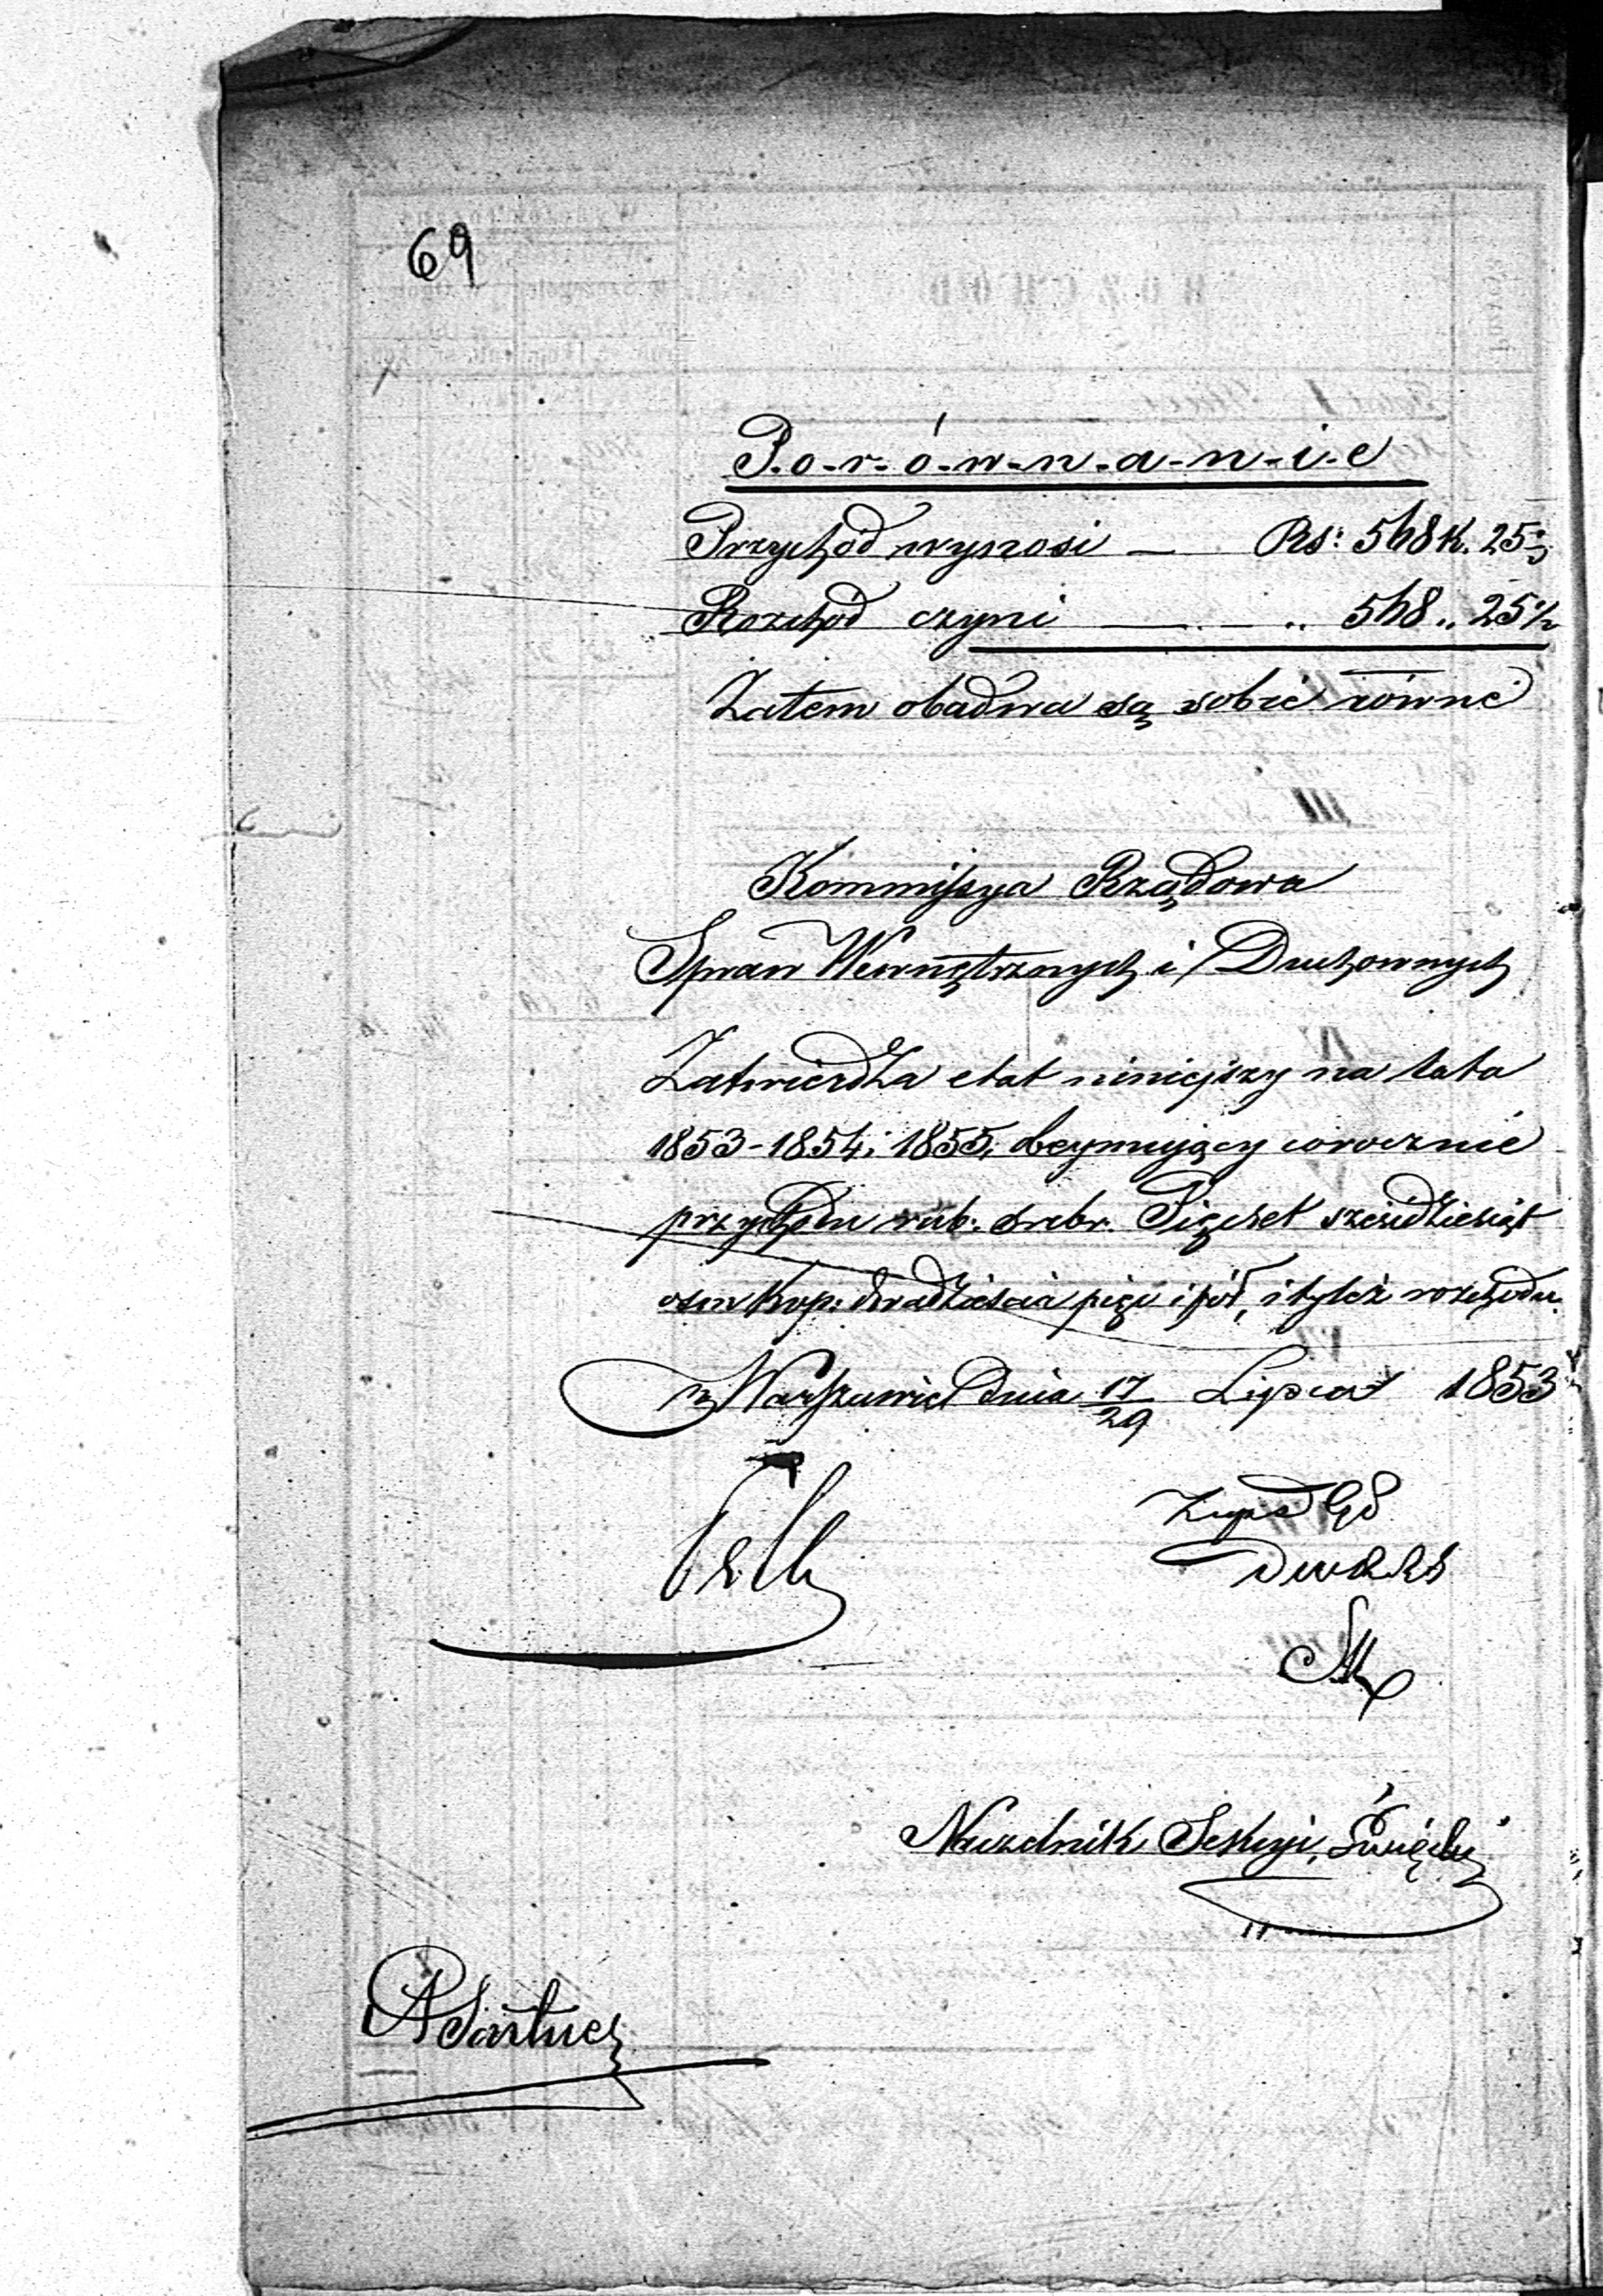 69
P.o-r-ó-w-n-a-n-i-e
Przychód wynosi — Rs: 568 k. 25½
Rozchód czyni — . — .. 568 .. 25½
Zatem obadwa są sobie równe
Kommissya Rządowa
Spraw Wewnętrznych i Duchownych
Zatwierdza etat niniejszy na lata
1853-1854 i 1855, obeymujący corocznie
przychodu rub. srebr. Pięćset sześćdziesiąt
osm kop: dwadzieścia pięć i pół, i tyleż rozchodu.
w Warszawie dnia 17/29 Lipca 1853
Naczelnik Sekcyi,